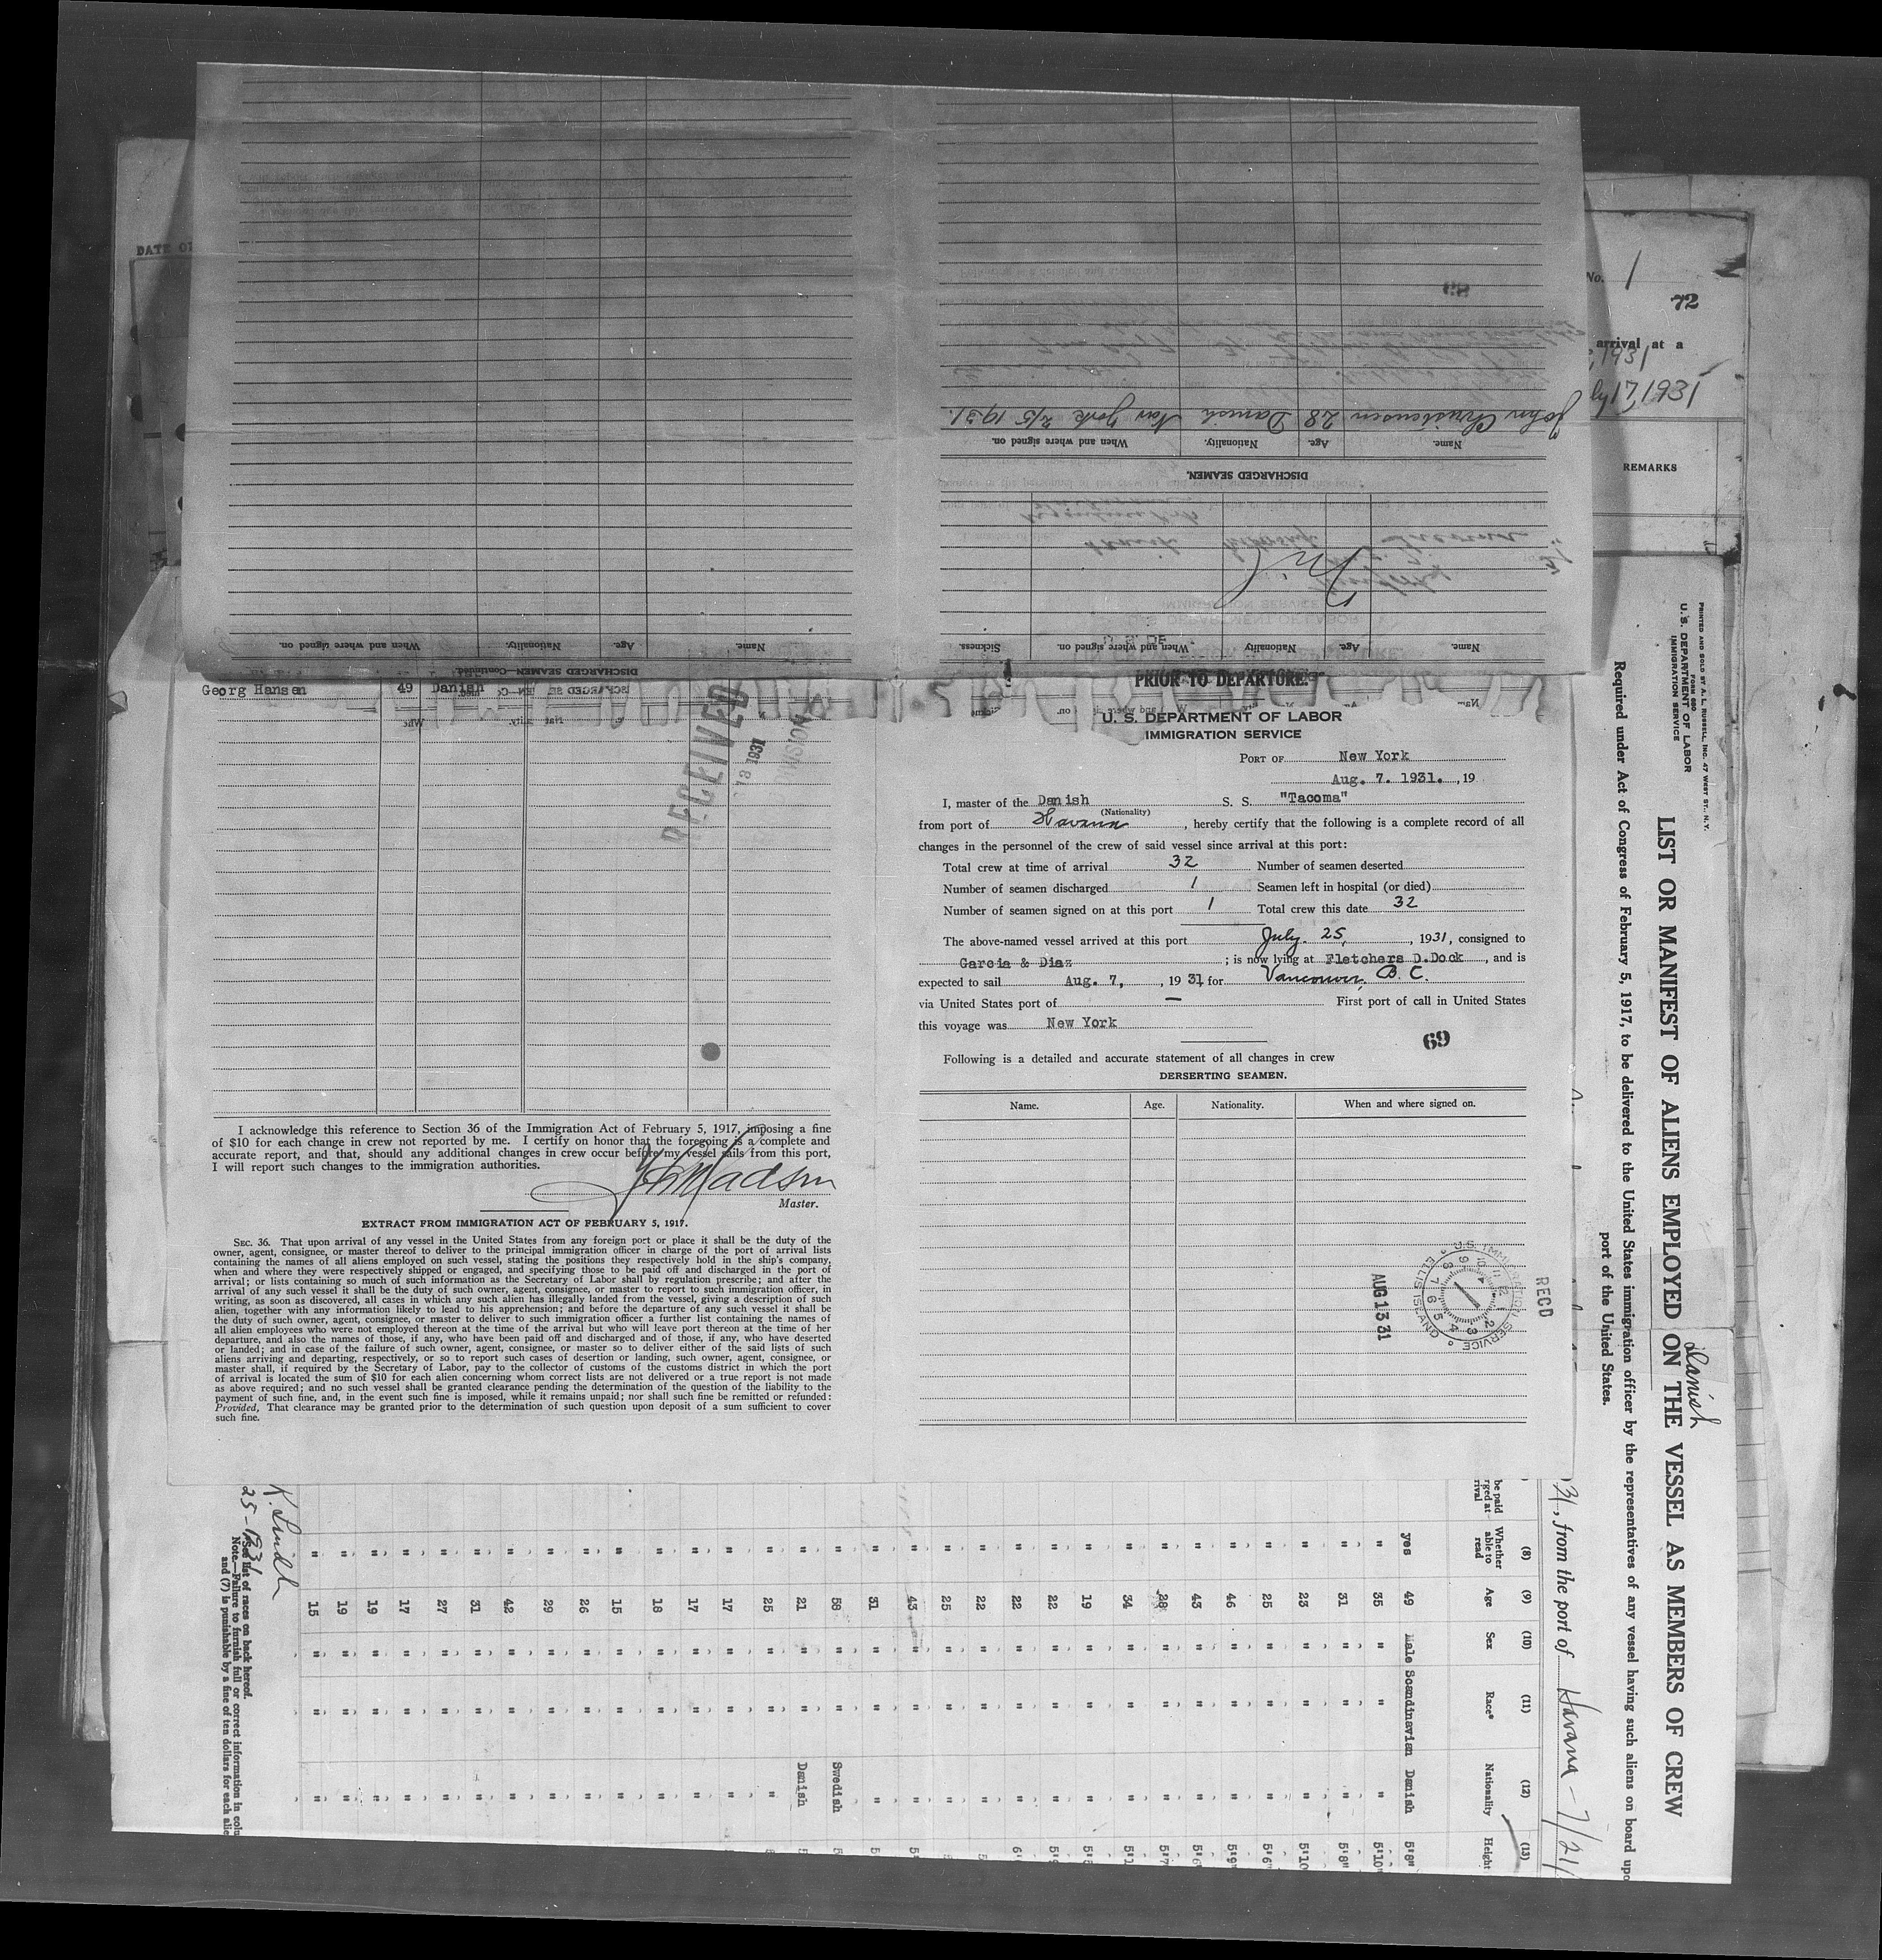 DATE OF
No. 1
72
arrival at a
, 1931
ly 17, 1931
REMARKS
Name. Age. Nationality. When and where signed on.
DISCHARGED SEAMEN—Continued.
Name. Age. Nationality When and where signed on. Sickness.
Nil
DISCHARGED SEAMEN.
Name. Age. Nationality. When and where signed on.
John Christensen 28 Danish New York 2/5 1931.
Georg Hansen 49 Danish
RECEIVED
18 1931
DIVISION
I acknowledge this reference to Section 36 of the Immigration Act of February 5, 1917, imposing a fine
of $10 for each change in crew not reported by me. I certify on honor that the foregoing is a complete and
accurate report, and that, should any additional changes in crew occur before my vessel sails from this port,
I will report such changes to the immigration authorities.
Madsen
Master.
EXTRACT FROM IMMIGRATION ACT OF FEBRUARY 5, 1917.
SEC. 36. That upon arrival of any vessel in the United States from any foreign port or place it shall be the duty of the
owner, agent, consignee, or master thereof to deliver to the principal immigration officer in charge of the port of arrival lists
containing the names of all aliens employed on such vessel, stating the positions they respectively hold in the ship's company,
when and where they were respectively shipped or engaged, and specifying those to be paid off and discharged in the port of
arrival; or lists containing so much of such information as the Secretary of Labor shall by regulation prescribe; and after the
arrival of any such vessel it shall be the duty of such owner, agent, consignee, or master to report to such immigration officer, in
writing, as soon as discovered, all cases in which any such alien has illegally landed from the vessel, giving a description of such
alien, together with any information likely to lead to his apprehension; and before the departure of any such vessel it shall be
the duty of such owner, agent, consignee, or master to deliver to such immigration officer a further list containing the names of
all alien employees who were not employed thereon at the time of the arrival but who will leave port thereon at the time of her
departure, and also the names of those, if any, who have been paid off and discharged and of those, if any, who have deserted
or landed; and in case of the failure of such owner, agent, consignee, or master so to deliver either of the said lists of such
aliens arriving and departing, respectively, or so to report such cases of desertion or landing, such owner, agent, consignee, or
master shall, if required by the Secretary of Labor, pay to the collector of customs of the customs district in which the port
of arrival is located the sum of $10 for each alien concerning whom correct lists are not delivered or a true report is not made
as above required; and no such vessel shall be granted clearance pending the determination of the question of the liability to the
payment of such fine, and, in the event such fine is imposed, while it remains unpaid; nor shall such fine be remitted or refunded:
Provided, That clearance may be granted prior to the determination of such question upon deposit of a sum sufficient to cover
such fine.
PRIOR TO DEPARTURE.
U. S. DEPARTMENT OF LABOR
IMMIGRATION SERVICE
PORT OF New York
Aug. 7. 1931. , 19
I, master of the Danish S. S. "Tacoma"
(Nationality)
from port of Havana , hereby certify that the following is a complete record of all
changes in the personnel of the crew of said vessel since arrival at this port:
Total crew at time of arrival 32 Number of seamen deserted
Number of seamen discharged 1 Seamen left in hospital (or died)
Number of seamen signed on at this port 1 Total crew this date 32
The above-named vessel arrived at this port July. 25, , 1931, consigned to
Garcia & Diaz ; is now lying at Fletchers D.Dock , and is
expected to sail Aug. 7, , 19 31 for Vancouver, B. C.
via United States port of — First port of call in United States
this voyage was New York
69
Following is a detailed and accurate statement of all changes in crew
DERSERTING SEAMEN.
Name. Age. Nationality. When and where signed on.
U. S. IMMIGRATION SERVICE
ELLIS ISLAND
AUG 13 31
RECD
PRINTED AND SOLD BY A. L. RUSSELL, INC. 47 WEST ST., N.Y.
FORM 680
U. S. DEPARTMENT OF LABOR
IMMIGRATION SERVICE
Danish
LIST OR MANIFEST OF ALIENS EMPLOYED ON THE VESSEL AS MEMBERS OF CREW
Required under Act of Congress of February 5, 1917, to be delivered to the United States immigration officer by the representatives of any vessel having such aliens on board upo
port of the United States.
31, from the port of Havana - 7/21/
(8) (9) (10) (11) (12) (13)
be paid
rged at
rival
Whether able to read Age Sex Race* Nationality Height
yes 49 Male Scandinavian Danish 5'8"
" 35 " " " 5'10"
" 31 " " " 5'8"
" 23 " " " 5'10
" 25 " " " 5'6"
" 46 " " " 5'9"
" 43 " " " 5'6
" 28 " " " 5'7
" 34 " " " 5'1
" 19 " " "
" 22 " " "
" 22 " " " 6'
" 22 " " "
" 25 " " "
" 43 " " "
" 31 " " "
" 58 " " Swedish
" 21 " " Danish
" 25 " " "
" 17 " " "
" 17 " " "
" 18 " " "
" 15 " " "
" 26 " " "
" 29 " " "
" 42 " " "
" 31 " " "
" 27 " " "
" 17 " " "
" 19 " " "
" 19 " " "
" 15 " " "
25 - 1931
*See list of races on back hereof.
Note.—Failure to furnish full or correct information in colu
and (7) is punishable by a fine of ten dollars for each alie